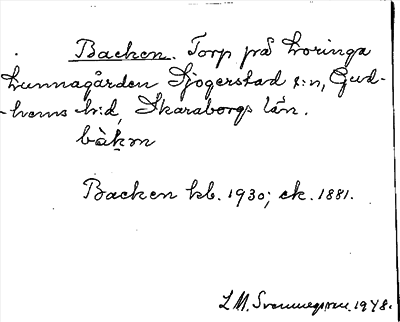 Backen. Torp på Loringa
Lunnagården Sjogerstad s:n, Gud-
-hems h:d, Skaraborgs län.
bàkɱ
Backen kb. 1930; ek. 1881.
L. M. Svenungsson. 1948.